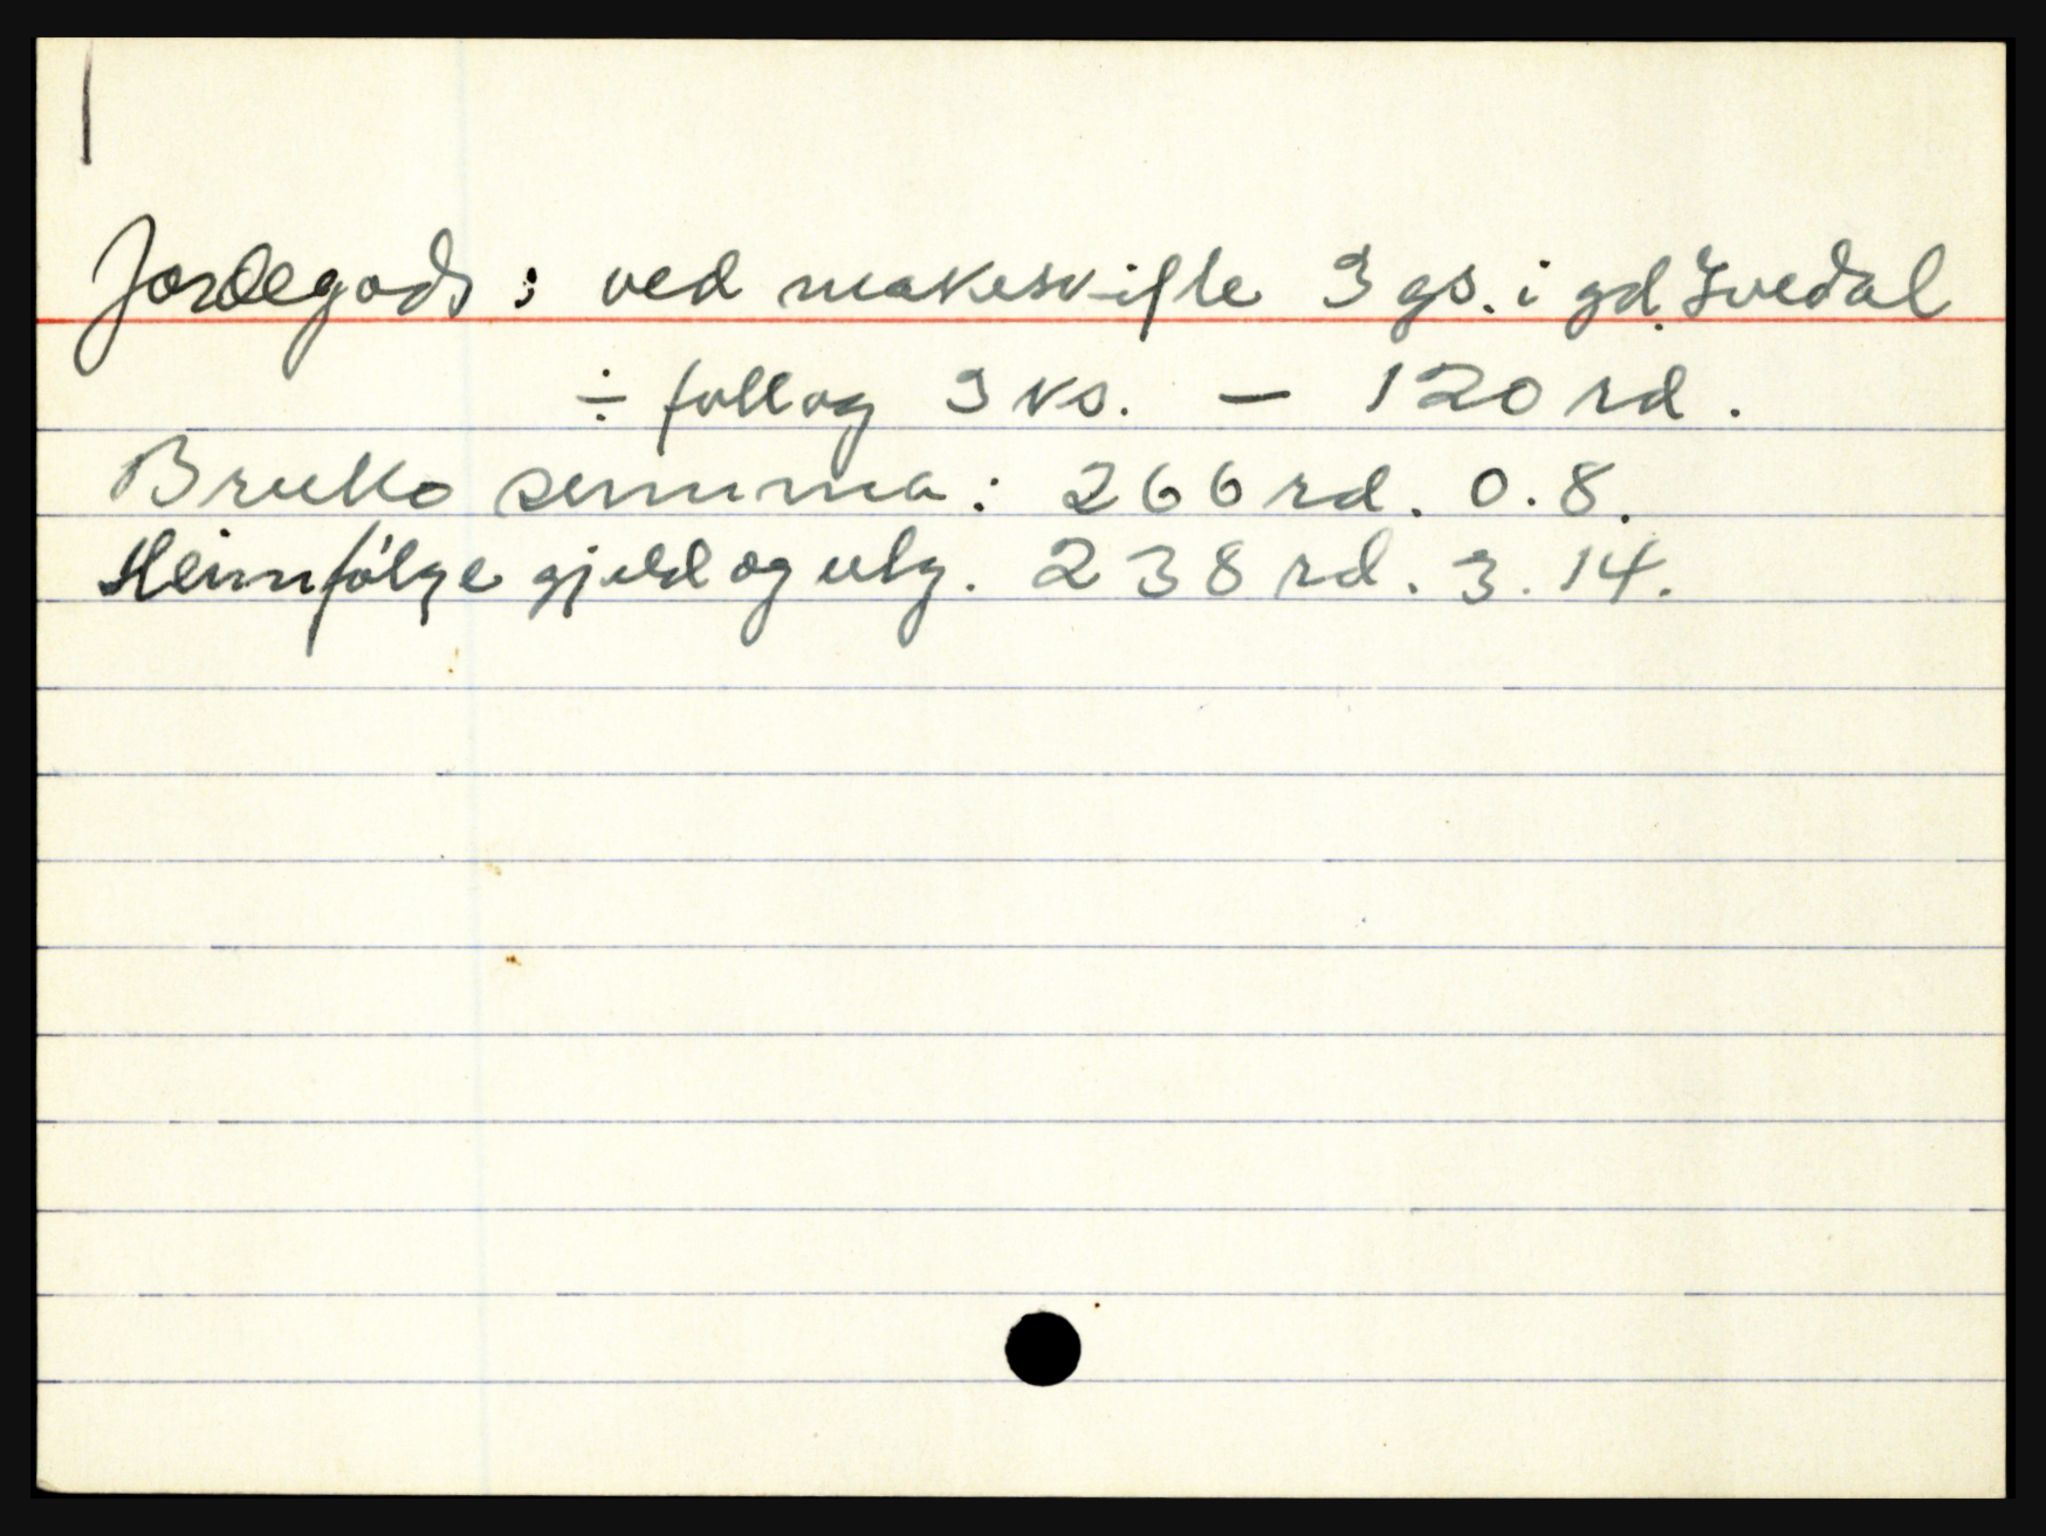 Jordegods: ved makeskifte 3 gs. i gd. Ivedal
÷ follog 3 ks. — 120 rd.
Brutto summa: 266 rd. 0. 8.
Heimfølge gjeld og utg. 238 rd. 3. 14.